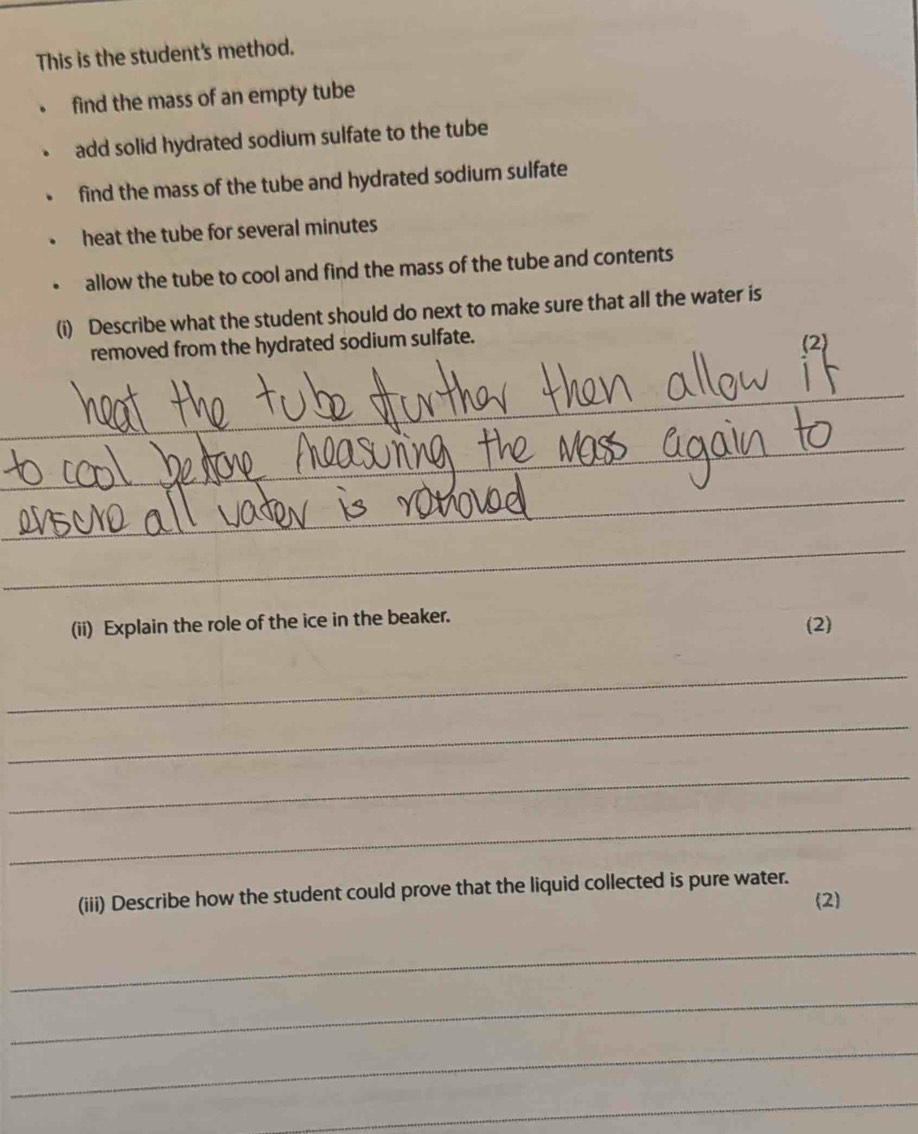 This is the student's method.
• find the mass of an empty tube
• add solid hydrated sodium sulfate to the tube
• find the mass of the tube and hydrated sodium sulfate
• heat the tube for several minutes
• allow the tube to cool and find the mass of the tube and contents
(i) Describe what the student should do next to make sure that all the water is
removed from the hydrated sodium sulfate.
(2)
heat the tube further then allow it
to cool before measuring the mass again to
ensure all water is removed
(ii) Explain the role of the ice in the beaker.
(2)
(iii) Describe how the student could prove that the liquid collected is pure water.
(2)